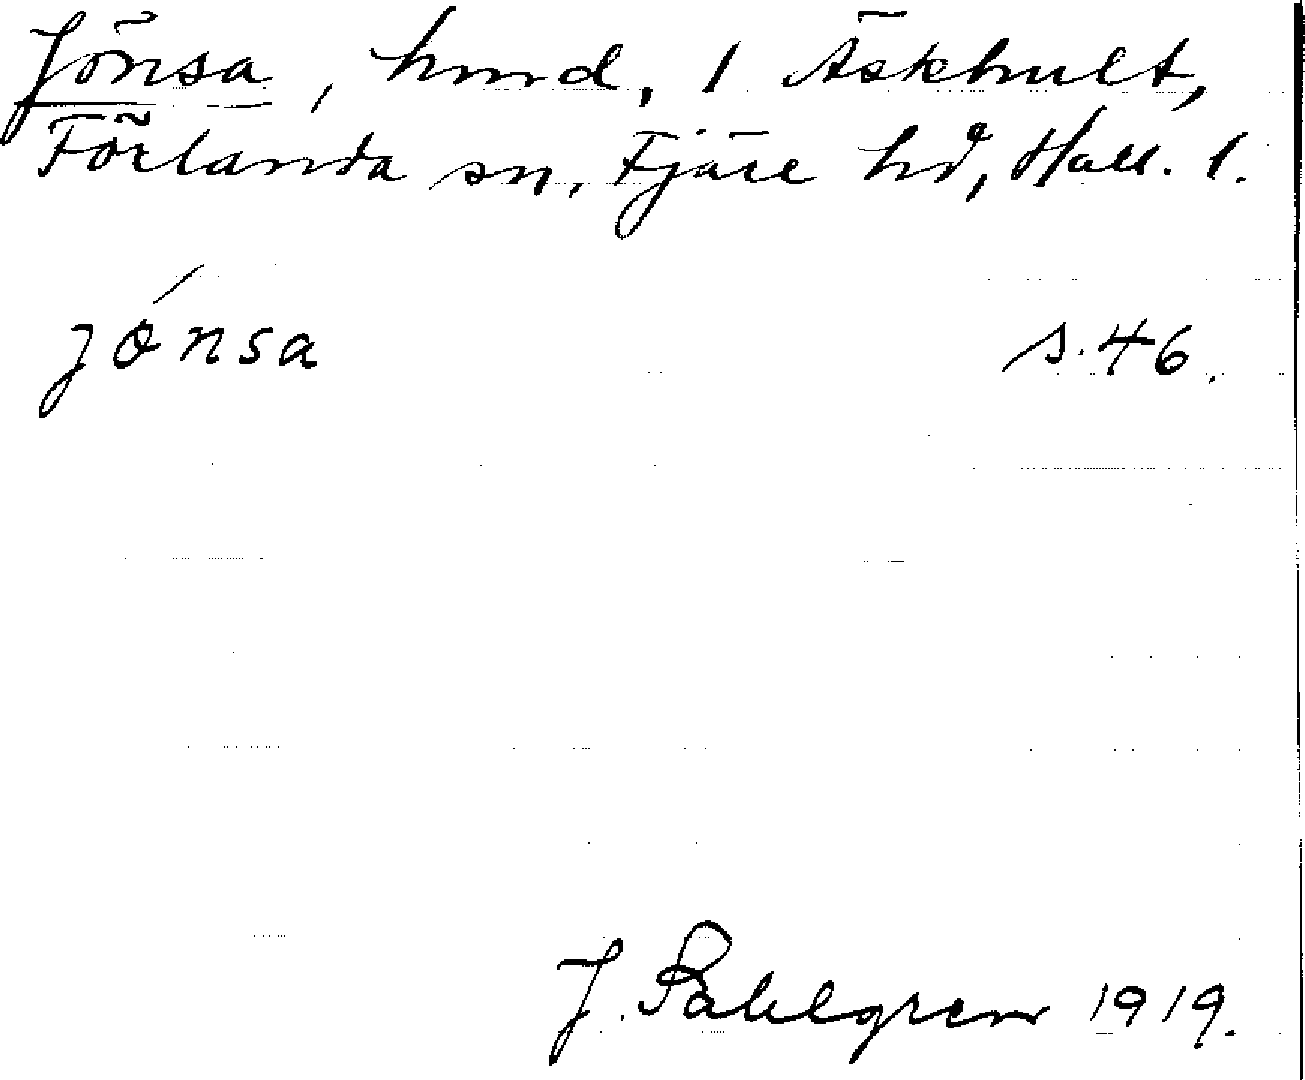 Jönsa, hmd, 1 Äskhult,
Förlanda sn, Fjäre hd, Hall. l.
jónsa s. 46.
J. Sahlgren 1919.